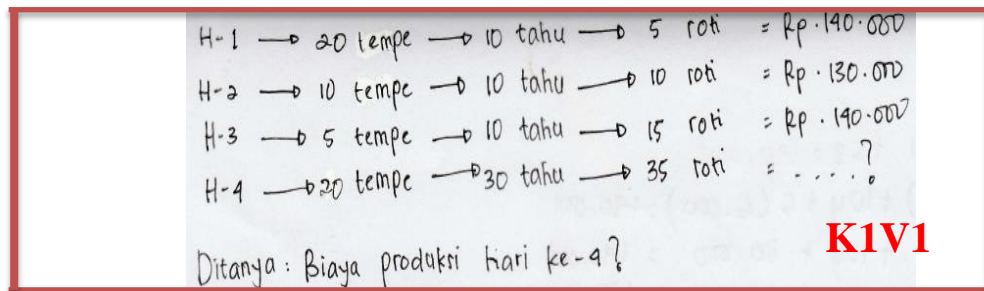 H-1 → 20 tempe → 10 tahu → 5 roti = Rp.140.000
H-2 → 10 tempe → 10 tahu → 10 roti = Rp.130.000
H-3 → 5 tempe → 10 tahu → 15 roti = Rp.140.000
H-4 → 20 tempe → 30 tahu → 35 roti = .....?
K1V1
Ditanya : Biaya produksi hari ke-4?